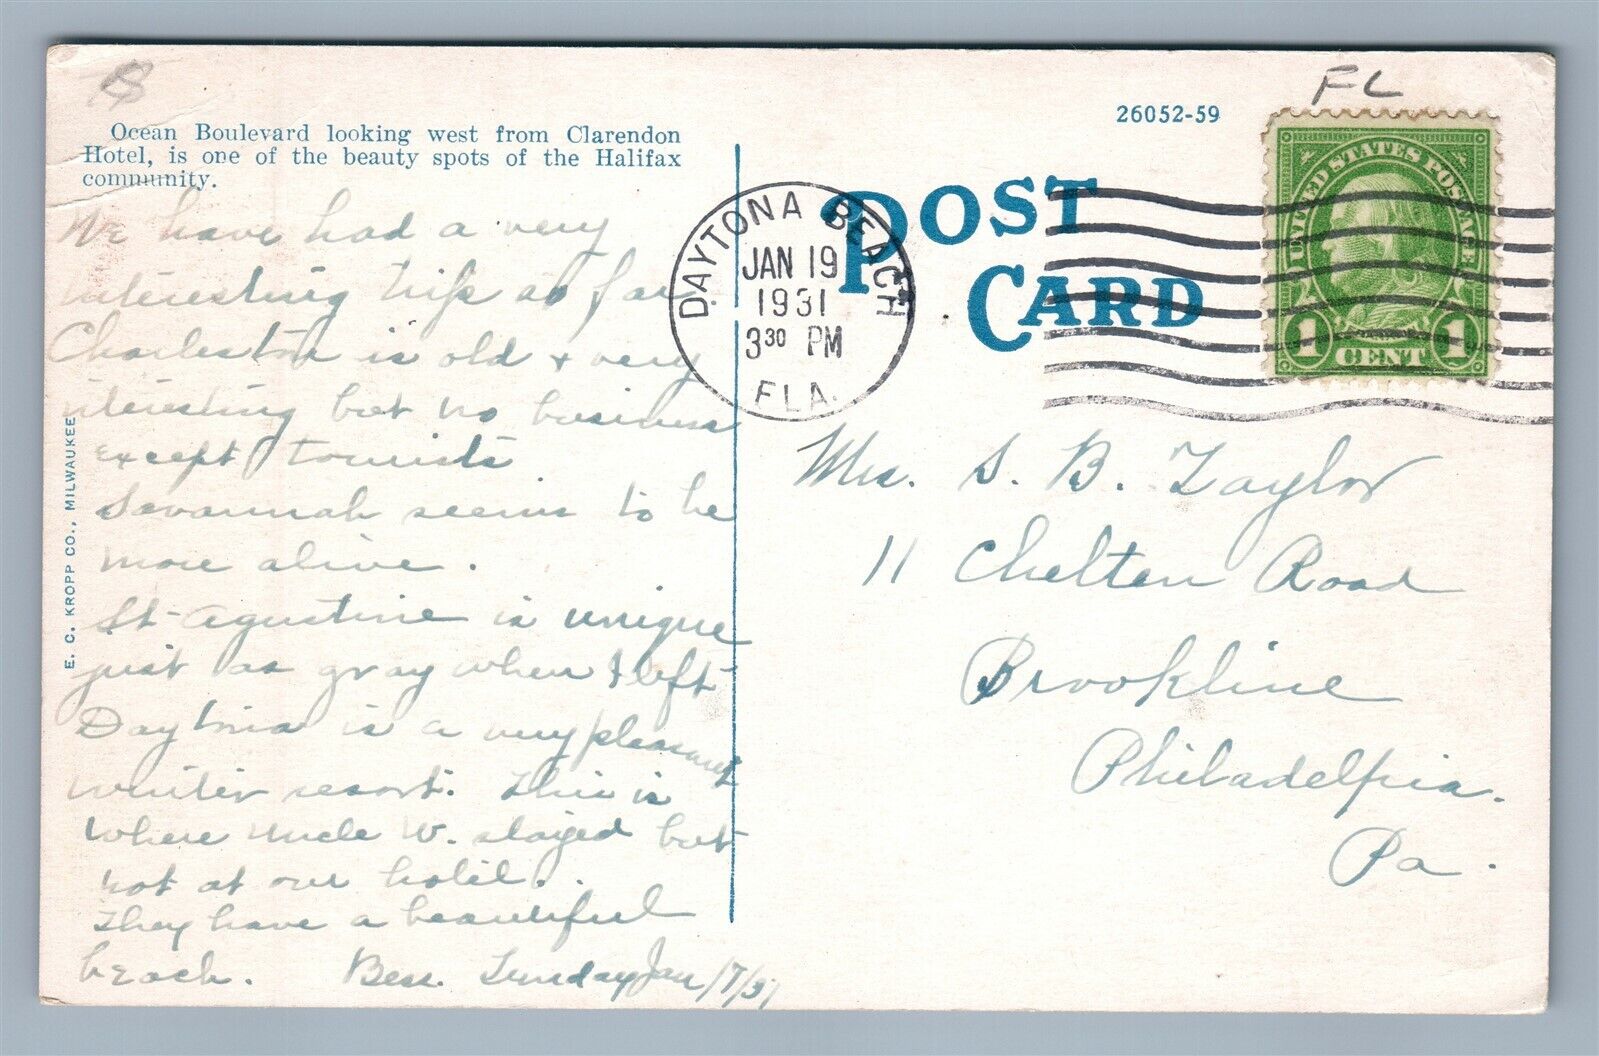 FL
26052-59
Ocean Boulevard looking west from Clarendon
Hotel, is one of the beauty spots of the Halifax
community.
We have had a very
interesting trip so far
Charleston is old + very
interesting but no business
except tourists
Savannah seems to be
more alive.
St-Agustine is unique
just as gray when I left
Daytona is a very pleasant
winter resort. This is
where Uncle W. stayed but
not at our hotel.
They have a beautiful
beach. Bess. Sunday Jan
E. C. KROPP CO., MILWAUKEE
POST
CARD
DAYTONA BEACH
JAN 19
1931
3 30 PM
FLA.
UNITED STATES POSTAGE
1 CENT 1
Mrs. S. B. Taylor
11 Chelten Road
Brookline
Philadelphia.
Pa.